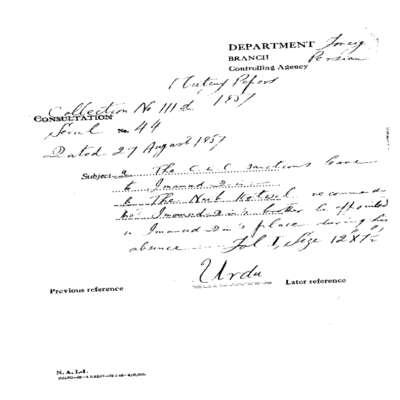 DEPARTMENT Foreign
BRANCH Persian
Controlling Agency
Mutiny Papers
Collection No III d 1857
CONSULTATION
Serial No. 44
Dated 27 August 1857
Subject a The C & C sanctions leave
to Imamud Din
b The Naib Kotwal recommends
Imamud Din's brother be appointed
in Imamud Din's place during his
absence Fol I, Size 12 X
Urdu
Previous reference Later reference
N. A. I.-I.